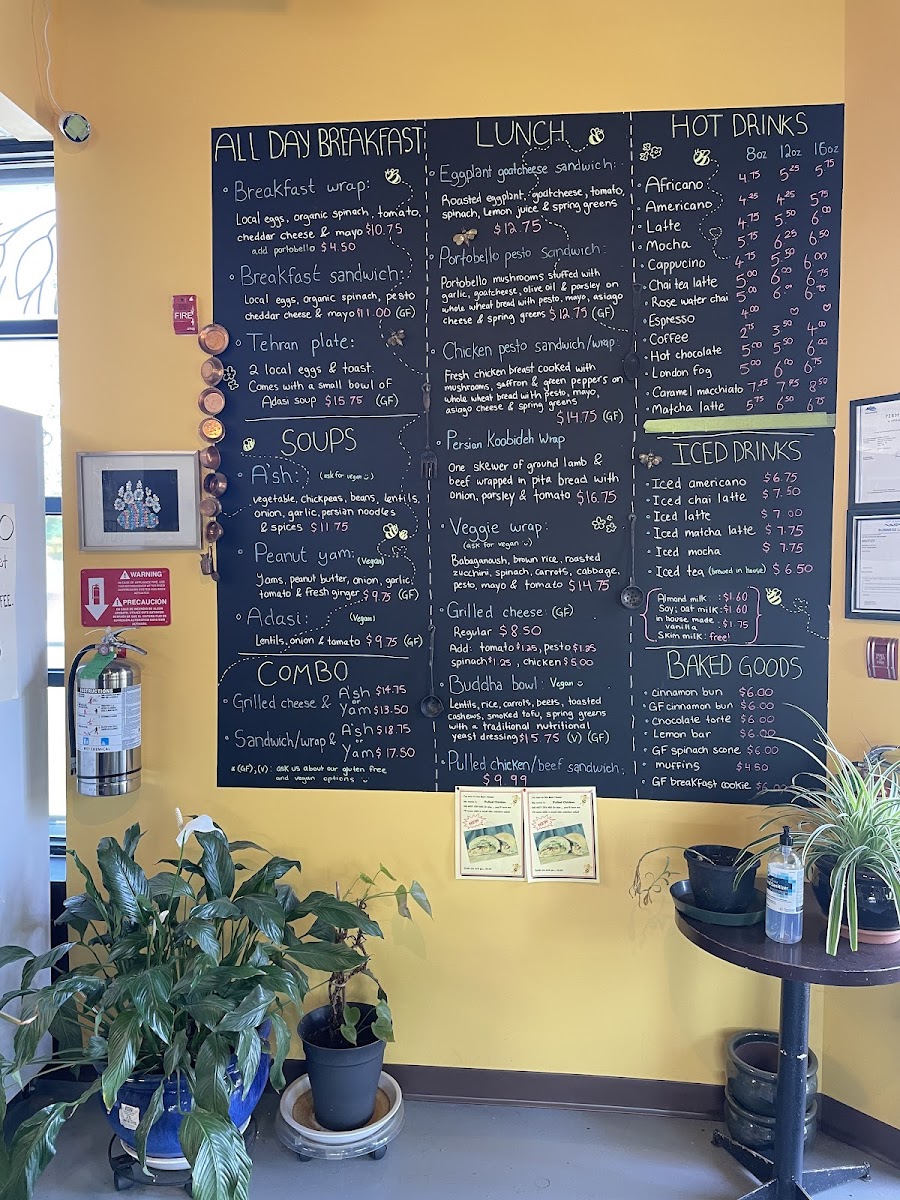 ALL DAY BREAKFAST
Breakfast wrap:
Local eggs, organic spinach, tomato,
cheddar cheese & mayo $10.75
add portobello $4.50
Breakfast sandwich:
Local eggs, organic spinach, pesto
cheddar cheese & mayo $11.00 (GF)
Tehran plate:
2 local eggs & toast.
Comes with a small bowl of
Adasi soup $15.75 (GF)
SOUPS
A'sh: (ask for vegan :))
vegetable, chickpeas, beans, lentils,
onion, garlic, persian noodles
& spices $11.75
Peanut yam: (Vegan)
Yams, peanut butter, onion, garlic,
tomato & fresh ginger $9.75 (GF)
Adasi: (Vegan)
Lentils, onion & tomato $9.75 (GF)
COMBO
Grilled cheese & A'sh $14.75
or
Yam $13.50
Sandwich/wrap & A'sh $18.75
or
Yam $17.50
* (GF), (V): ask us about our gluten free
and vegan options
LUNCH
Eggplant goatcheese sandwich:
Roasted eggplant, goatcheese, tomato,
spinach, Lemon juice & spring greens
$12.75
Portobello pesto sandwich:
Portobello mushrooms stuffed with
garlic, goatcheese, olive oil & parsley on
whole wheat bread with pesto, mayo, asiago
cheese & spring greens $12.75 (GF)
Chicken pesto sandwich/wrap:
Fresh chicken breast cooked with
mushrooms, saffron & green peppers on
whole wheat bread with pesto, mayo,
asiago cheese & spring greens
$14.75 (GF)
Persian Koobideh Wrap
One skewer of ground lamb &
beef wrapped in pita bread with
onion, parsley & tomato $16.75
Veggie wrap:
(ask for vegan :))
Babaganoush, brown rice, roasted
zucchini, spinach, carrots, cabbage,
pesto, mayo & tomato $14.75
Grilled cheese (GF)
Regular $8.50
Add: tomato $1.25, pesto $1.25
spinach $1.25, chicken $5.00
Buddha bowl: Vegan
Lentils, rice, carrots, beets, toasted
cashews, smoked tofu, spring greens
with a traditional nutritional
yeast dressing $15.75 (V) (GF)
Pulled chicken/beef sandwich:
$9.99
HOT DRINKS
8oz 12oz 16oz
Africano 4.75 5.25 5.75
Americano 4.25 4.25 5.75
Latte 4.75 5.50 6.00
Mocha 5.75 6.25 6.50
Cappucino 4.75 5.50 6.00
Chai tea latte 5.00 6.00 6.75
Rose water chai 5.00 6.00 6.75
Espresso 4.00
Coffee 2.75 3.50 4.00
Hot chocolate 5.00 5.50 6.00
London fog 5.00 6.00 6.75
Caramel macchiato 7.25 7.95 8.50
Matcha latte 5.75 6.50 6.75
ICED DRINKS
Iced americano $6.75
Iced chai latte $7.50
Iced latte $7.00
Iced matcha latte $7.75
Iced mocha $7.75
Iced tea (brewed in house) $6.50
Almond milk: $1.60
Soy; oat milk: $1.60
in house made
vanilla : $1.75
Skim milk: free!
BAKED GOODS
cinnamon bun $6.00
GF cinnamon bun $6.00
Chocolate torte $6.00
Lemon bar $6.00
GF spinach scone $6.00
muffins $4.50
GF breakfast cookie
FIRE
WARNING
PRECAUCIÓN
INSTRUCTIONS
Pulled Chicken
NEW
FIRE